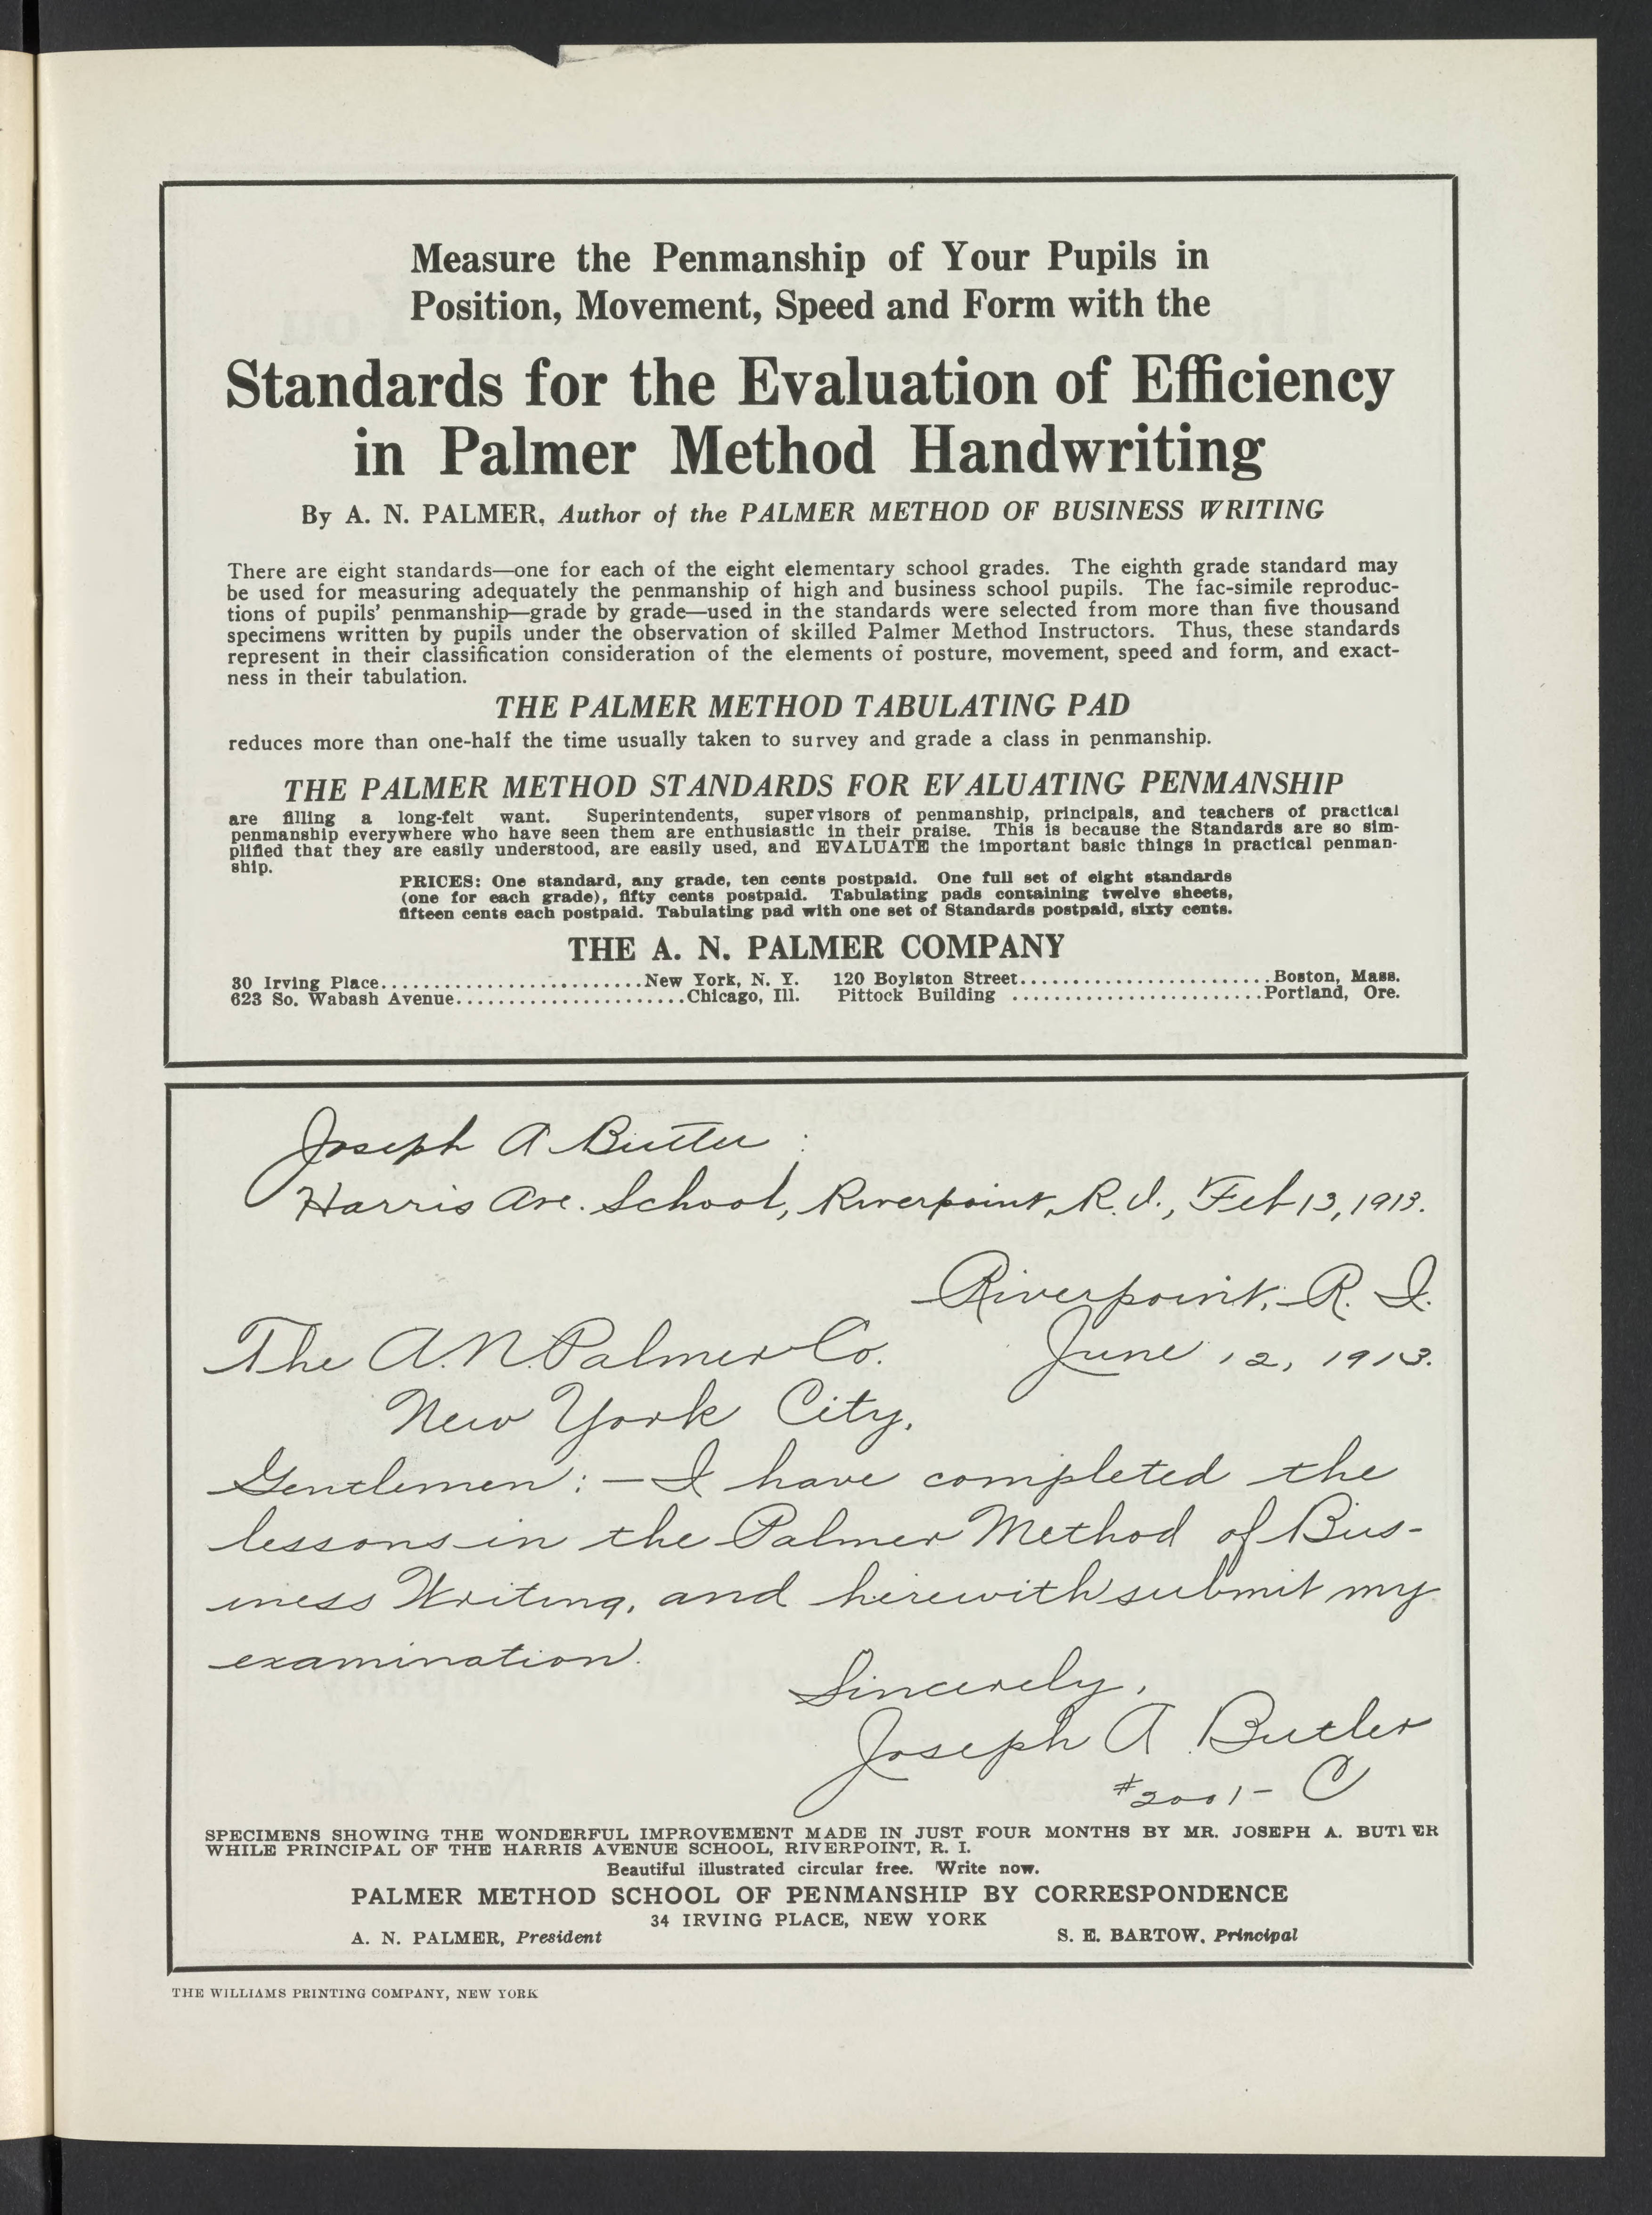 Measure the Penmanship of Your Pupils in
Position, Movement, Speed and Form with the
Standards for the Evaluation of Efficiency
in Palmer Method Handwriting
By A. N. PALMER, Author of the PALMER METHOD OF BUSINESS WRITING
There are eight standards—one for each of the eight elementary school grades. The eighth grade standard may
be used for measuring adequately the penmanship of high and business school pupils. The fac-simile reproduc-
tions of pupils' penmanship—grade by grade—used in the standards were selected from more than five thousand
specimens written by pupils under the observation of skilled Palmer Method Instructors. Thus, these standards
represent in their classification consideration of the elements of posture, movement, speed and form, and exact-
ness in their tabulation.
THE PALMER METHOD TABULATING PAD
reduces more than one-half the time usually taken to survey and grade a class in penmanship.
THE PALMER METHOD STANDARDS FOR EVALUATING PENMANSHIP
are filling a long-felt want. Superintendents, supervisors of penmanship, principals, and teachers of practical
penmanship everywhere who have seen them are enthusiastic in their praise. This is because the Standards are so sim-
plified that they are easily understood, are easily used, and EVALUATE the important basic things in practical penman-
ship.
PRICES: One standard, any grade, ten cents postpaid. One full set of eight standards
(one for each grade), fifty cents postpaid. Tabulating pads containing twelve sheets,
fifteen cents each postpaid. Tabulating pad with one set of Standards postpaid, sixty cents.
THE A. N. PALMER COMPANY
30 Irving Place.........................New York, N. Y. 120 Boylston Street........................Boston, Mass.
623 So. Wabash Avenue......................Chicago, Ill. Pittock Building ........................Portland, Ore.
Joseph A Butler :
Harris Ave. School, Riverpoint, R.I., Feb 13, 1913.
Riverpoint, R. I.
The A. N. Palmer Co. June 12, 1913.
New York City,
Gentlemen:— I have completed the
lessons in the Palmer Method of Bus-
iness Writing, and herewith submit my
examination.
Sincerely,
Joseph A Butler
#2001- C
SPECIMENS SHOWING THE WONDERFUL IMPROVEMENT MADE IN JUST FOUR MONTHS BY MR. JOSEPH A. BUTLER
WHILE PRINCIPAL OF THE HARRIS AVENUE SCHOOL, RIVERPOINT, R. I.
Beautiful illustrated circular free. Write now.
PALMER METHOD SCHOOL OF PENMANSHIP BY CORRESPONDENCE
34 IRVING PLACE, NEW YORK
A. N. PALMER, President S. E. BARTOW, Principal
THE WILLIAMS PRINTING COMPANY, NEW YORK